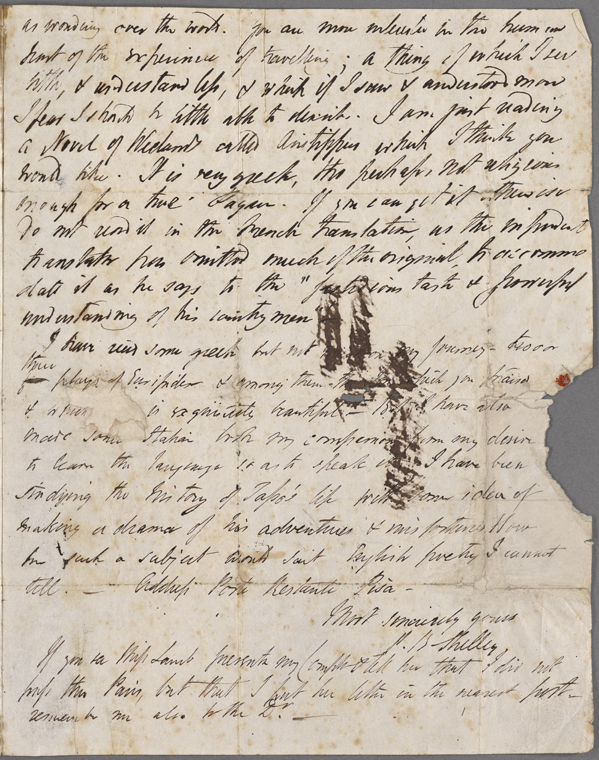 as wondering over the work. You are more interested in the human
part of the experience of travelling; a thing of which I see
little, & understand less, & which if I saw & understood more
I fear I should be little able to describe. I am just reading
a Novel of Wieland's called Aristippus which I think you
would like. It is very Greek, tho perhaps not religious
enough for a true Pagan. If you can get it otherwise
do not read it in the French translation, as the impudent
translator has omitted much of the original, to accommo
date it as he says to the "fastidious taste & powerful
understanding of his countrymen
I have read some greek but not my journey - two or
three
plays of Euripides & among them the which you praised
& is exquisitely beautiful I have also
made some Italian my companions from my desire
to learn the language so as to speak it. I have been
studying the history of Tasso's life with some idea of
making a drama of his adventures & misfortunes How
such a subject would suit English poetry I cannot
tell. — Address Post Restante Pisa —
Most sincerely yours
P. B Shelley
If you see Miss Lamb present my Compts & tell her that I did not
pass thro Paris, but that I put her letter in the nearest post—
remember me also to the Dr. —